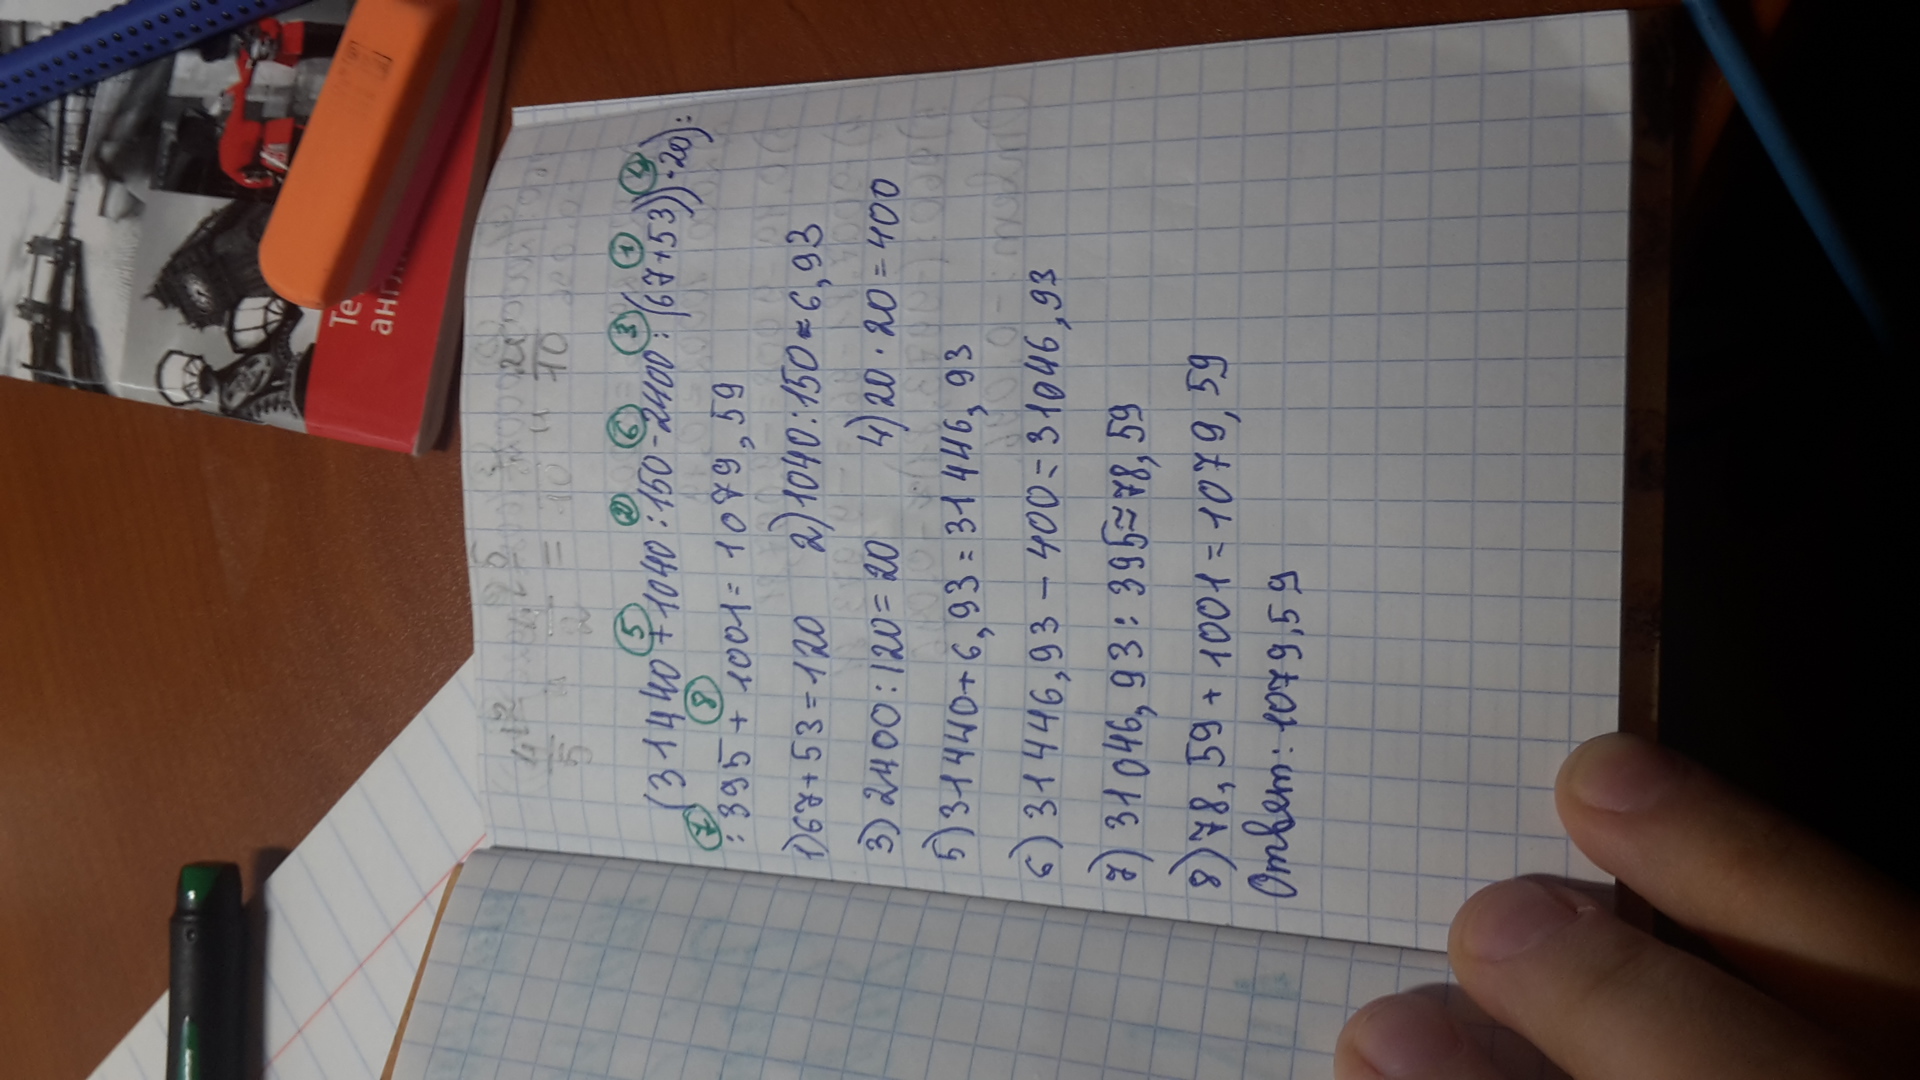 (31440+1040:150-2400:(67+53))·20):
5 2 6 3 1 4
:395+1001=1079,59
7 8
1)67+53=120 2)1040:150≈6,93
3)2400:120=20 4)20·20=400
5)31440+6,93=31446,93
6)31446,93-400=31046,93
7)31046,93:395≈78,59
8)78,59+1001=1079,59
Ответ: 1079,59
Те
англ